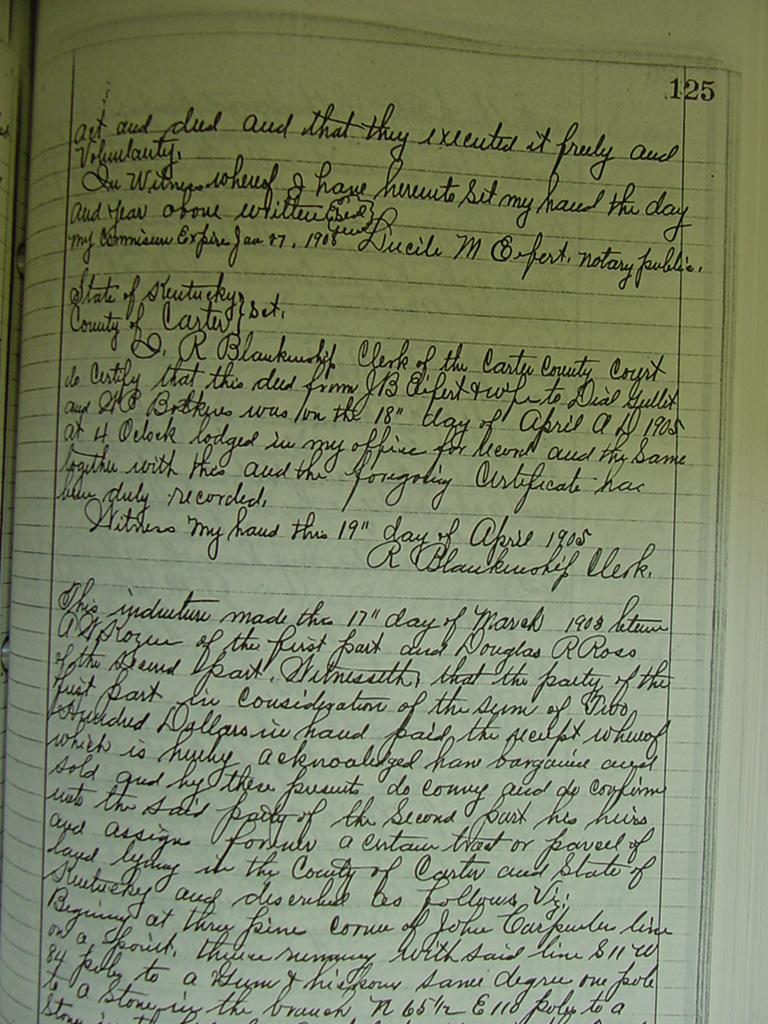 125
act and deed and that they executed it freely and
Voluntarily.
In Witness whereof I have hereunto Set my hand the day
and year above written
my Commission Expire Jan 27, 1908 Lucile M Eifert. notary public.
State of Kentucky
County of Carter } Sct.
I, R Blankenship Clerk of the Carter County Court
do Certify that this deed from J B Eifert & wife to Dial Gullet
and was on the 18" day of April A D 1905
at 4 Oclock lodged in my office for record and the Same
together with this and the foregoing Certificate has
been duly recorded.
Witness my hand this 19" day of April 1905
R Blankenship Clerk.
This indenture made this 17" day of March 1903 between
of the first part and Douglas R Ross
of the Second part. Witnesseth, that the party of the
first part in consideration of the sum of Two
Hundred Dollars in hand paid the receipt whereof
which is hereby acknowledged have bargained and
sold and by these presents do convey and do confirm
unto the said party of the Second part his heirs
and assigns forever a certain tract or parcel of
land lying in the County of Carter and State of
Kentucky and described as follows, Viz;
Begining at three pine corner of John Carpenter line
on a point, thence running with said line S 11 W
84 poles to a Gum & hickory same degree one pole
to a Stone in the branch, N 65 1/2 E 110 poles to a
Stone in the